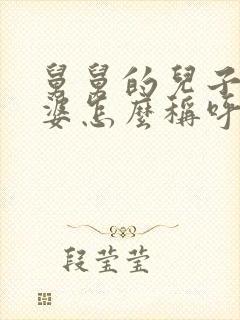 舅舅的兒子
婆怎麼稱呼
段莹莹